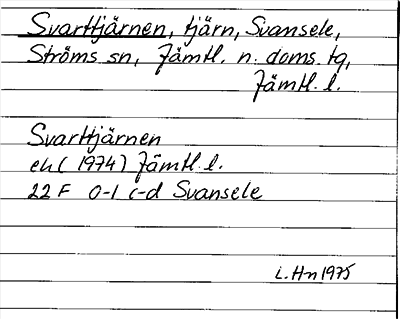 Svarttjärnen, tjärn, Svansele,
Ströms sn, Jämtl. n. doms. tg,
Jämtl. l.
Svarttjärnen
ek (1974) Jämtl. l.
22 F 0-1 c-d Svansele
L. Hn 1975